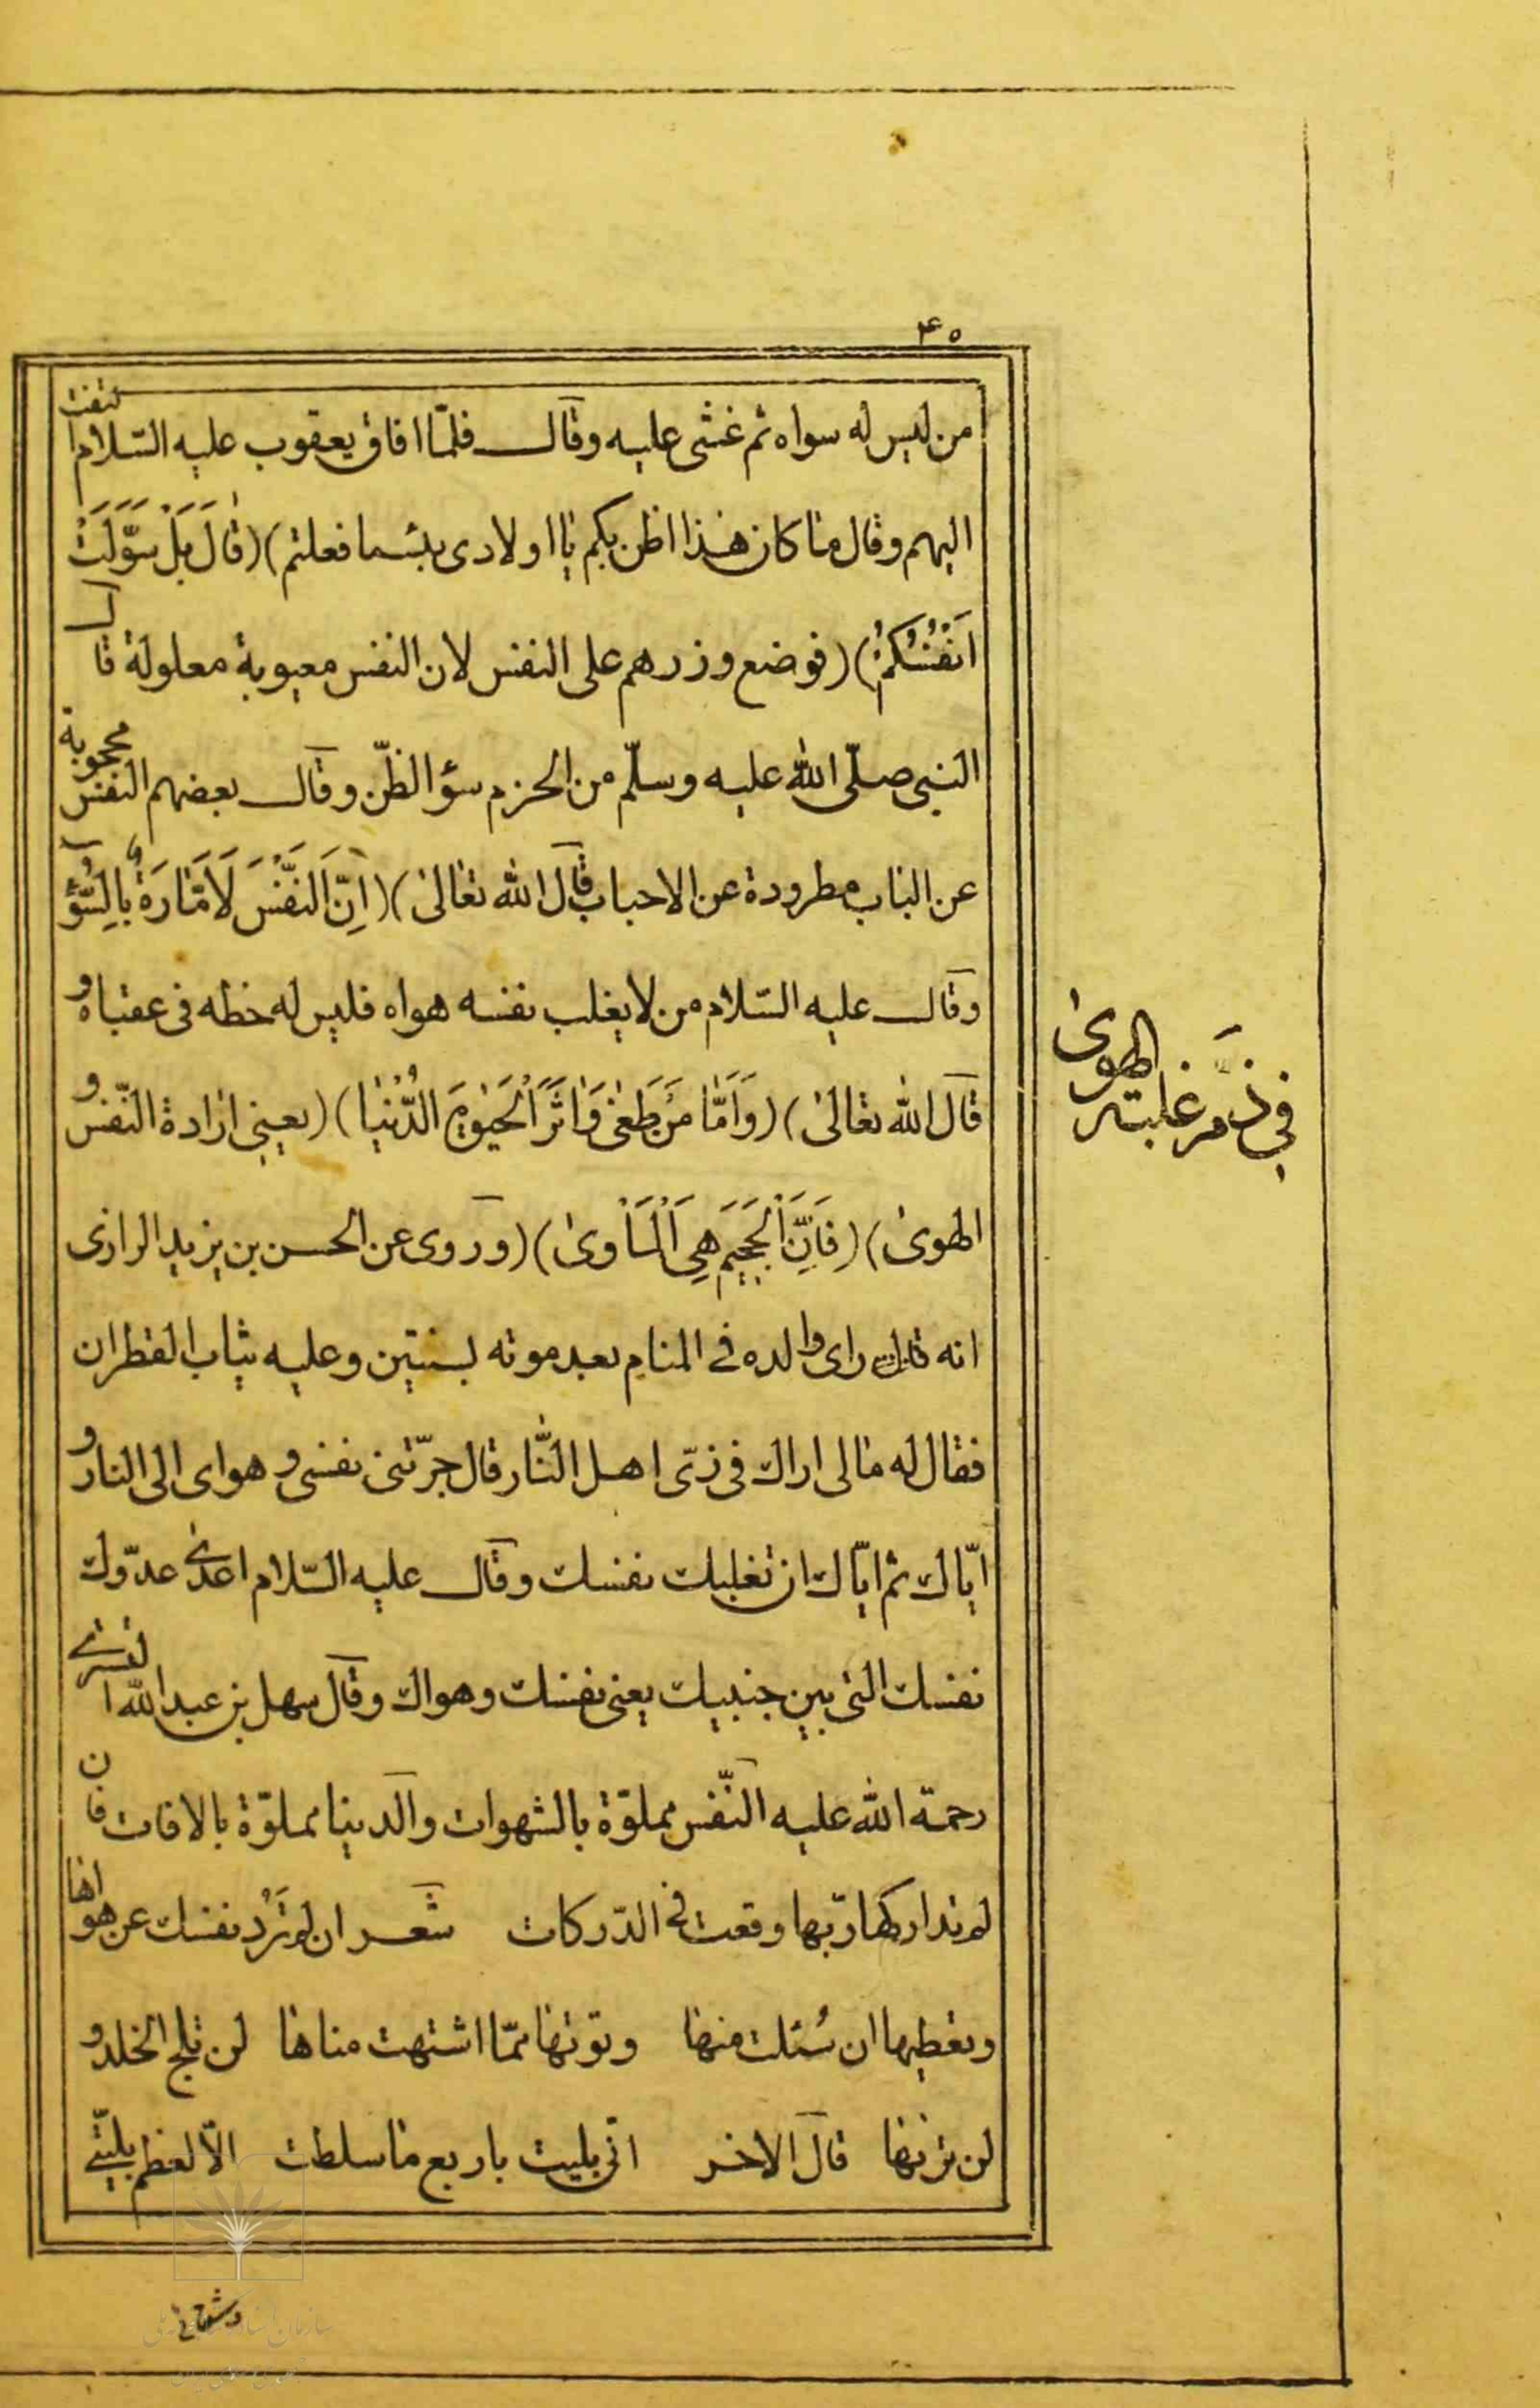 ۴۵
من ليس له سواه ثم غشى عليه وقال فلمّا افاق يعقوب عليه السّلام التفت
اليهم وقال ما كان هذا اظن بكم يا اولادى بئسما فعلتم) (قَالَ بَلْ سَوَّلَتْ
اَنْفُسُكُمْ) (فوضع وزرهم على النفس لان النفس معيوبة معلولة قال
النبى صلّى الله عليه وسلّم من الحزم سؤ الظنّ وقال بعضهم النفس محجوبة
عن الباب مطرودة عن الاحباب قال الله تعالى) (اِنَّ النَّفْسَ لَاَمَّارَةٌ بِالسُّوٓءِ
وقال عليه السّلام من لا يغلب نفسه هواه فليس له حظه فى عقباه و
قال الله تعالى) (وَاَمَّا مَنْ طَغٰى وَاٰثَرَ الْحَيٰوةَ الدُّنْيَا) (يعينى ارادة النّفس و
الهوى) (فَاِنَّ الْجَحِيمَ هِىَ الْمَأْوىٰ) (وروى عن الحسن بن يزيد الرازى
انه راى والده فى المنام بعد موته بسنتين وعليه ثياب القطران
فقال له مالى اراك فى زىّ اهل النّار قال جرّتنى نفسى و هواى الى النار و
ايّاك ثم ايّاك ان تغلبك نفسك وقال عليه السّلام اعدى عدّوك
نفسك التى بين جنبيك يعنى نفسك وهواك وقال سهل بن عبد الله التسترى
رحمة الله عليه النّفس مملوّة بالشهوات والدينا مملوّة بالافات فان
لم تداركها ربّها وقعت فى الدّركات شعر ان لم تَرُدْ نفسك عن هواها
وتعطيها ان سُئلت منها وتوتها ممّا اشتهت مناها لن تلج الخلد و
لن ترنها قال الاخر انّى بليت باربع ما سلطت الّا لعظم بليّتى
فى ذم غلبته الهوى